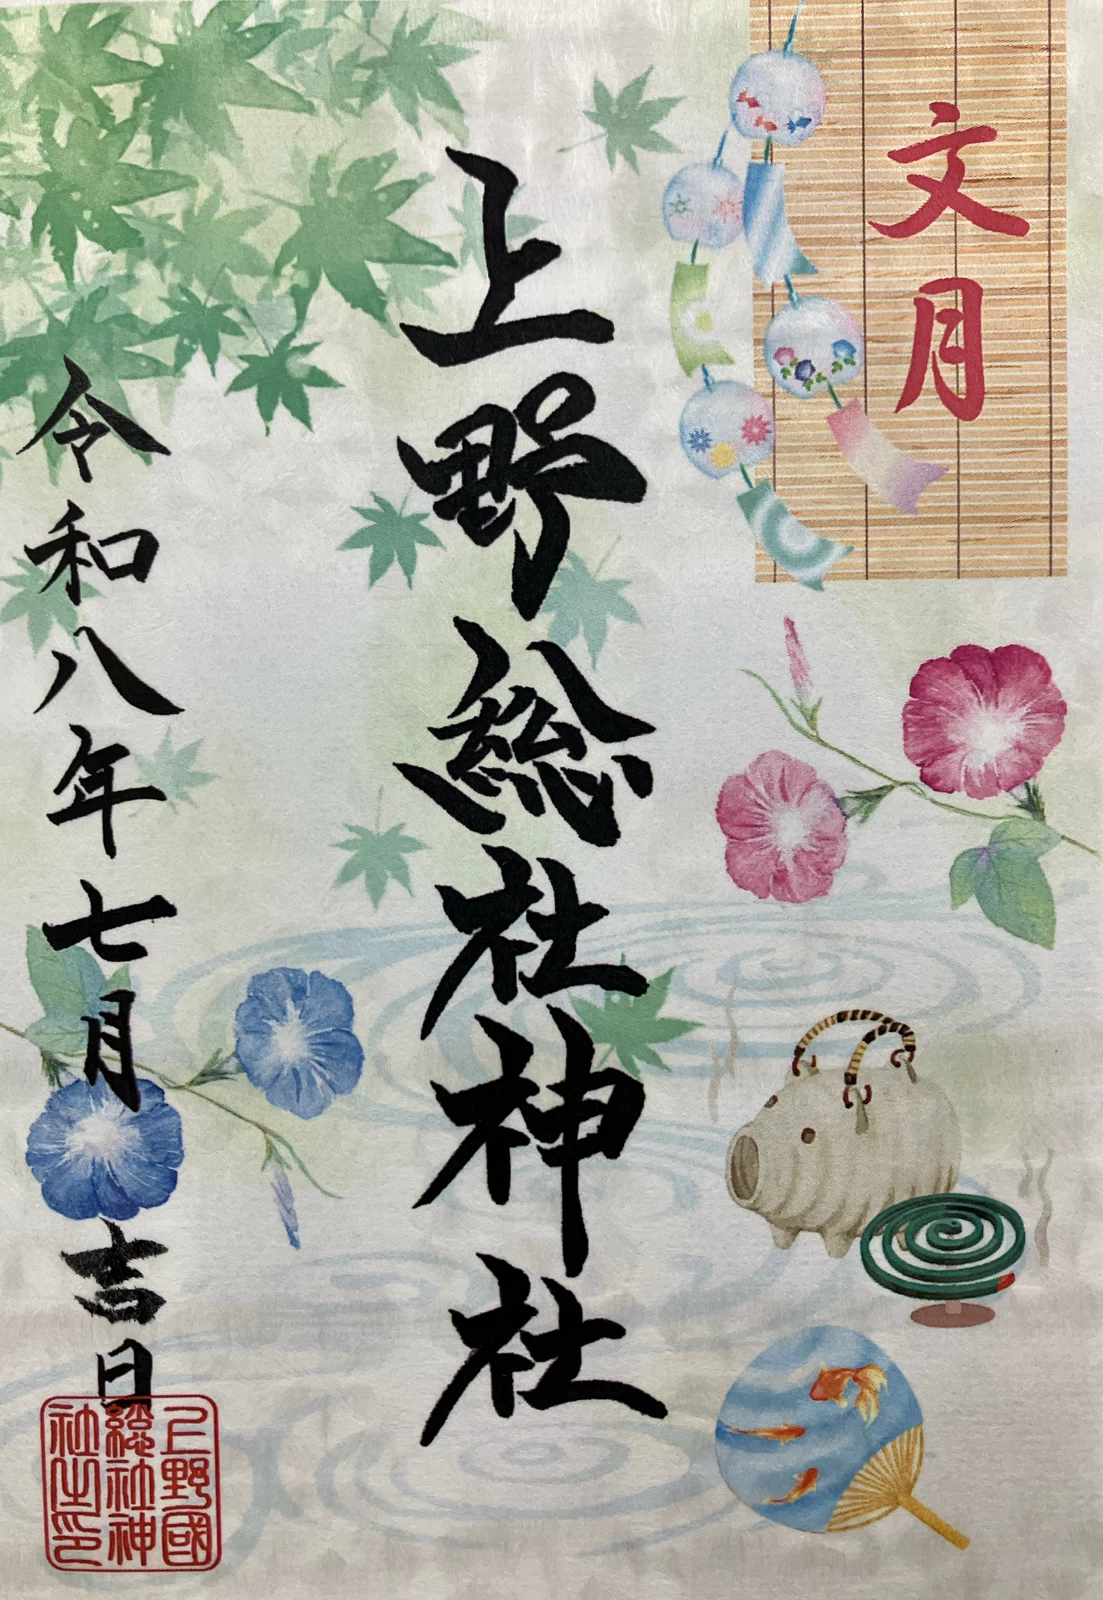 文月
上野総社神社
令和八年七月吉日
上野國
総社神
社之印